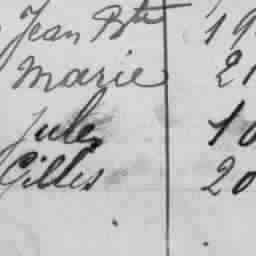 Jean Bte 19
Marie 21
Jules 10
Gilles 20